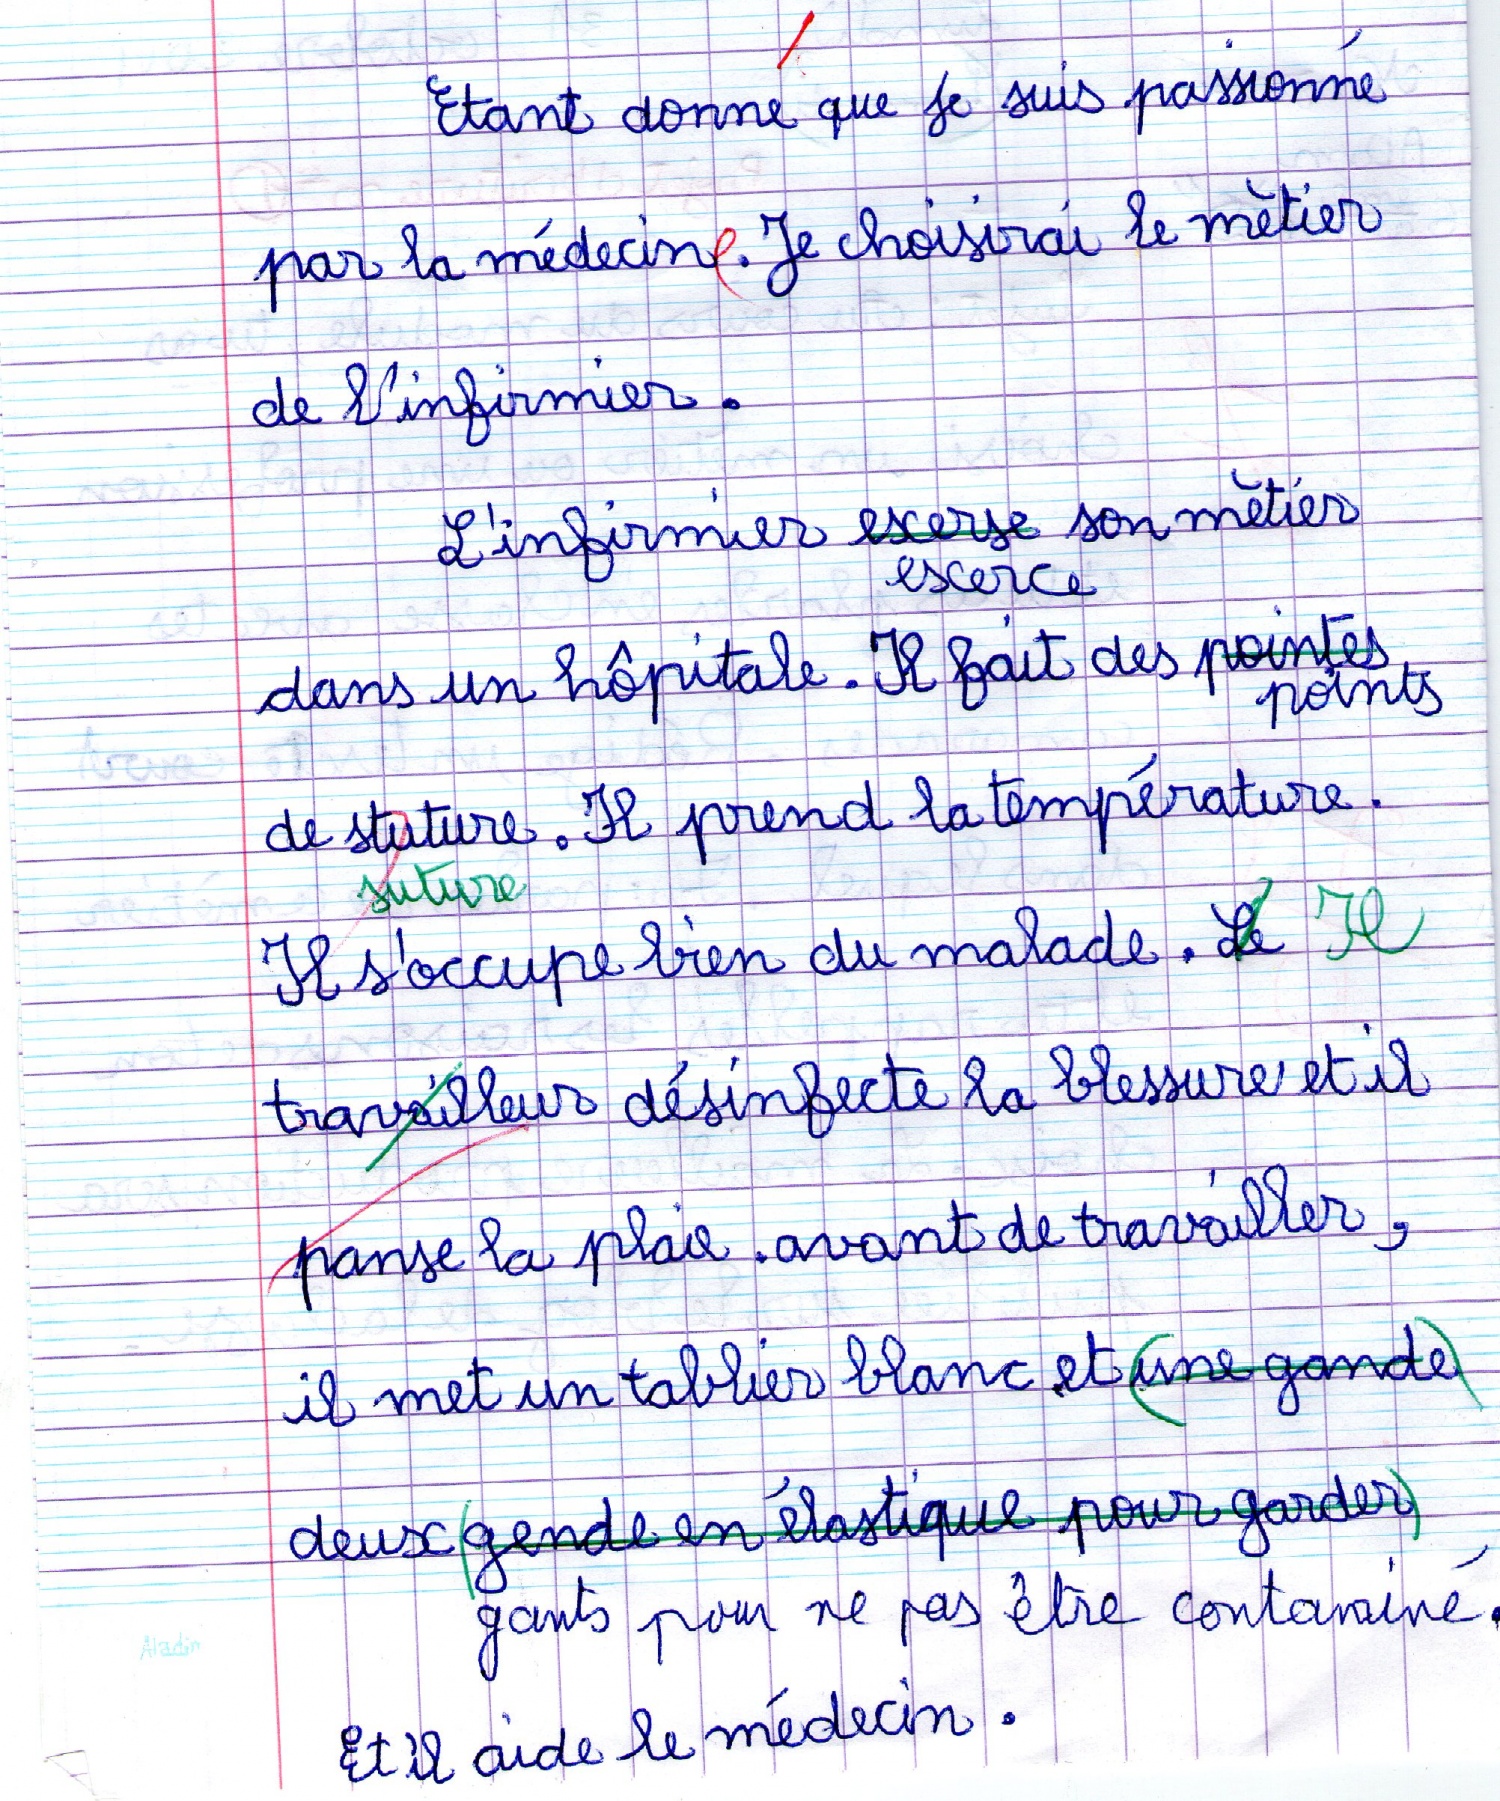 Etant donné que je suis passionné
par la médecine. Je choisirai le mètier
de l'infirmier.
L'infirmier exerse son mètier
exerce
dans un hôpitale. Il fait des pointes
points
de stuture. Il prend la température.
suture
Il s'occupe bien du malade. Le Il
travailleur désinfecte la blessure et il
panse la plaie. avant de travailler,
il met un tablier blanc et (une gande)
deux (gende en élastique pour garder)
gants pour ne pas être contaminé.
Aladin
Et il aide le médecin.